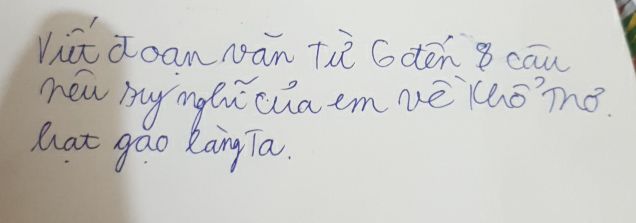 Viết đoạn văn từ 6 đến 8 câu
nêu suy nghĩ của em về khổ thơ.
hạt gạo làng Ta.